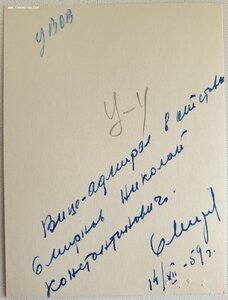 УВОВ
У-У
Вице-адмирал в отставке
Смирнов Николай
Константинович.
14/XII-59г.